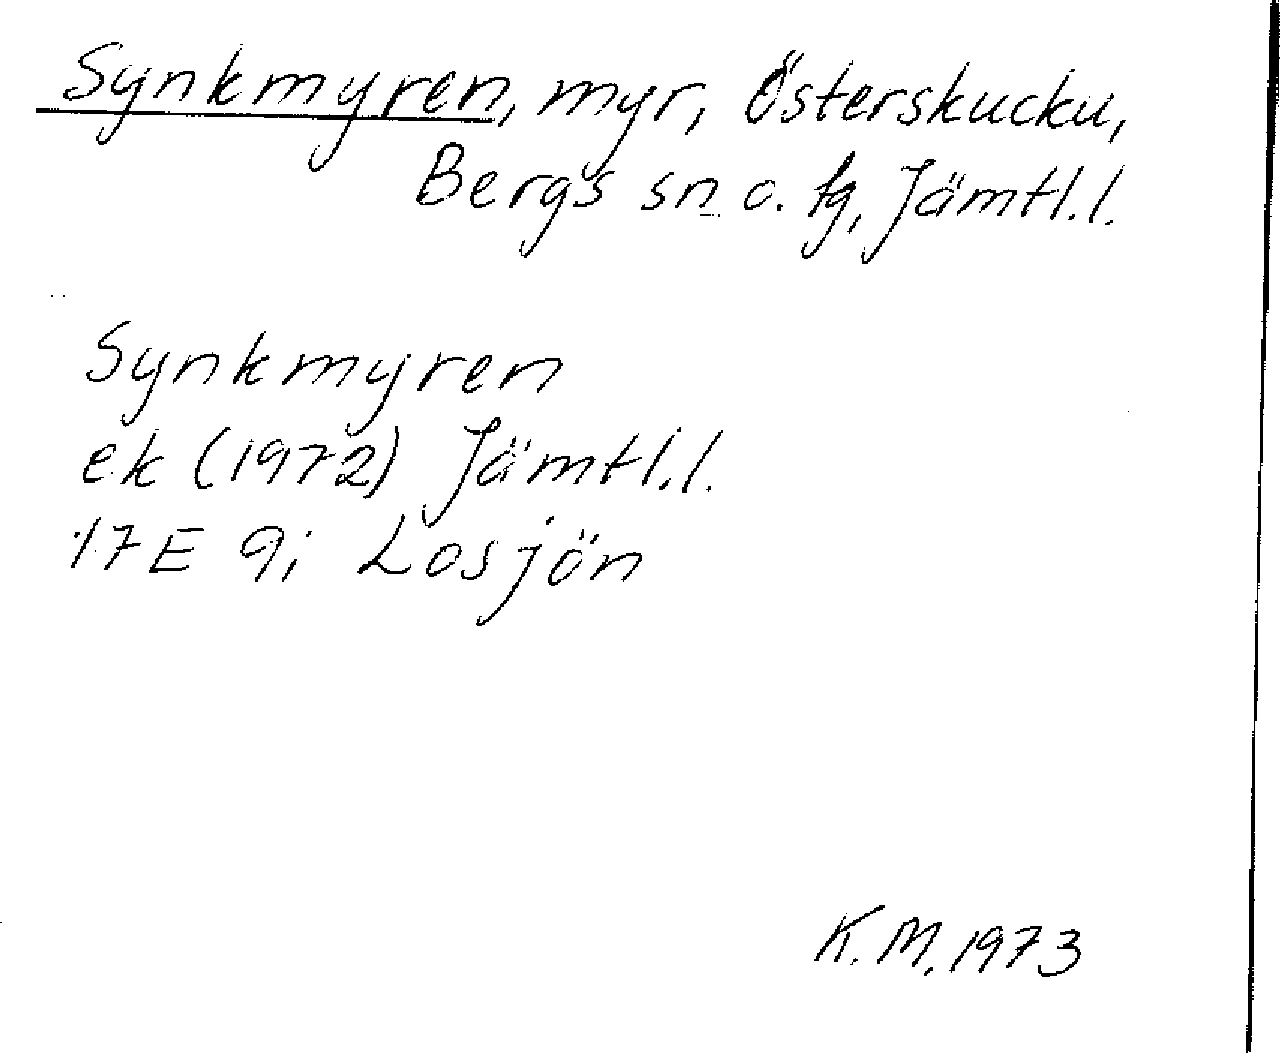 Synkmyren, myr, Österskucku,
Bergs sn o. tg, Jämtl.l.
Synkmyren
ek (1972) Jämtl.l.
17E 9i Losjön
K.M. 1973